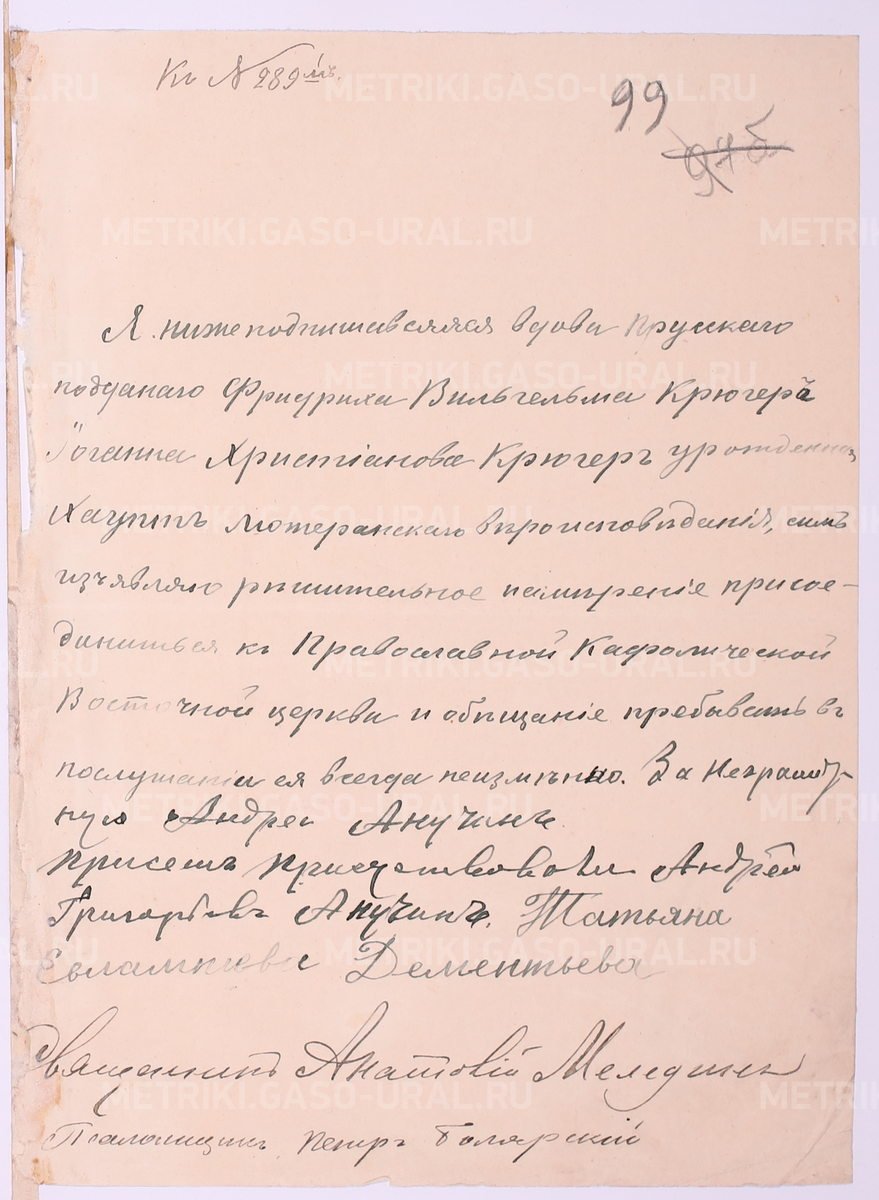 Къ № 289 мъ.
99
975
Я нижеподписавшаяся вдова Прусскаго
подданаго Фридриха Вильгельма Крюгеръ
Іоганна Христіанова Крюгеръ урожденная
Хауптъ лютеранскаго вѣроисповѣданія, симъ
изъявляю рѣшительное намѣреніе присое-
диниться къ Православной Кафолической
Восточной церкви и обѣщаніе пребывать въ
послушаніи ея всегда неизмѣнно. За неграмот-
ную Андрей Анучинъ
Присемъ Присутствовали Андрей
Григорьевъ Анучинъ. Татьяна
Евлампіева Дементьева
Священникъ Анатолій
Псаломщикъ Петръ
METRIKI.GASO-URAL.RU